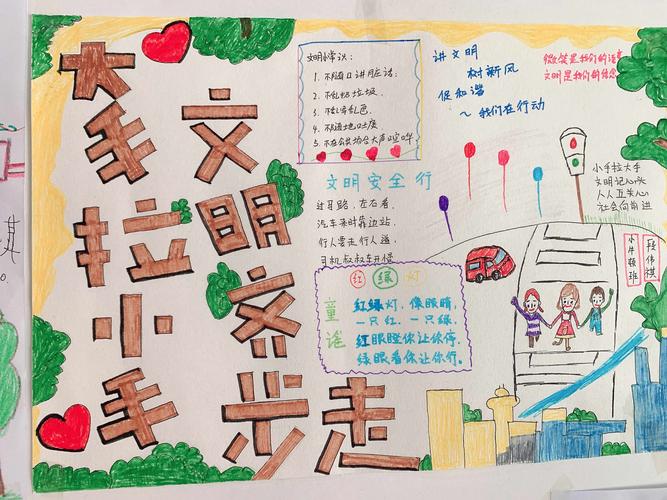 大手拉小手
文明齐步走
文明小常识：
1. 不随口讲脏话；
2. 不乱扔垃圾.
3. 不乱穿乱爬.
4. 不随地吐痰.
5. 不在公共场合大声喧哗.
讲文明
树新风
促和谐
～我们在行动
微笑是我们的语言
文明是我们的信念
文明安全行
过马路，左右看，
汽车来时靠边站.
行人要走行人道，
司机叔叔车开慢
小手拉大手
文明记心头
人人五关心
社会向前进
小牛顿班
段伟祺
红绿灯
童谣
红绿灯，像眼睛，
一只红，一只绿.
红眼瞪你让你停，
绿眼看你让你行。